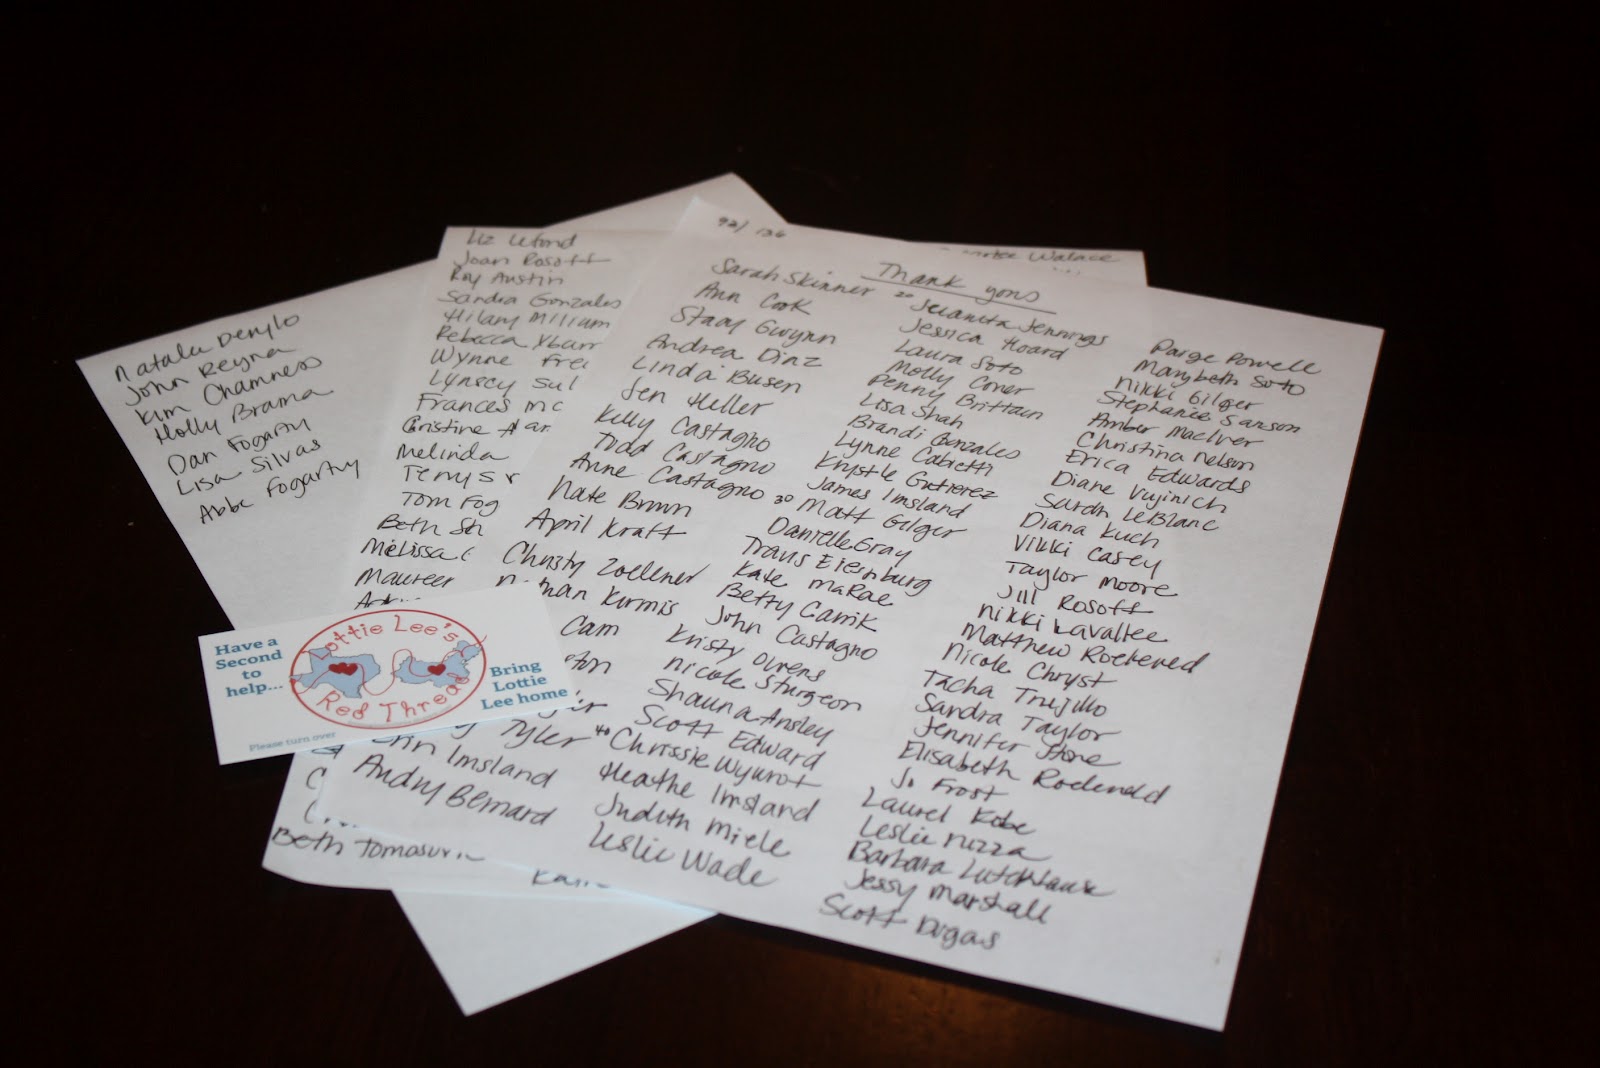 Natalie Denylo
John Reyna
Kim Chamness
Holly Brama
Dan Fogarty
Lisa Silvas
Abbe Fogarthy
Liz Lefond
Joan Rosoff
Roy Austin
Sandra Gonzales
Hilary Millum
Rebecca Ybarr
Wynne Fre
Lynscy Sul
Frances Mc
Christine
Melinda
Terry S
Tom Fog
Beth
Melissa
Maureer
Beth Tomasovic
Walace
92/ 136
Thank yous
Sarah Skinner
Ann Cook
Stacy Gwynn
Andrea Diaz
Linda Busen
Jen Heller
Kelly Castagno
Todd Castagno
Anne Castagno
Nate Brown
April Kraft
Christy Zoellner
Kurmis
Cam
Tyler
Erin Imsland
Audry Bernard
20 Juanita Jennings
Jessica Hoard
Laura Soto
Molly Coner
Penny Brittain
Lisa Shah
Brandi Gonzales
Lynne Cabietti
Krystle Gutierez
James Imsland
30 Matt Gilger
Danielle Gray
Travis Eisenburg
Kate MaRae
Betty Carrik
John Castagno
Kristy Owens
Nicole Sturgeon
Shauna Ansley
Scott Edward
40 Chrissie Wywrot
Heathe Imsland
Judith Miele
Leslie Wade
Paige Powell
Marybeth Soto
Nikki Gilger
Stephanie Sanson
Amber MacIver
Christina Nelson
Erica Edwards
Diane Vujinich
Sarah LeBlanc
Diana Kuch
Vikki Casey
Taylor Moore
Jill Rosoff
Nikki Lavallee
Matthew Rockeved
Nicole Chryst
Tacha Trujillo
Sandra Taylor
Jennifer Stone
Elisabeth Rockeveld
Jo Frost
Laurel Kobe
Leslie Nizza
Barbara
Jessy Marshall
Scott Dugas
Have a
Second
to
help...
Lottie Lee's
Red Thread
Bring
Lottie
Lee home
Please turn over